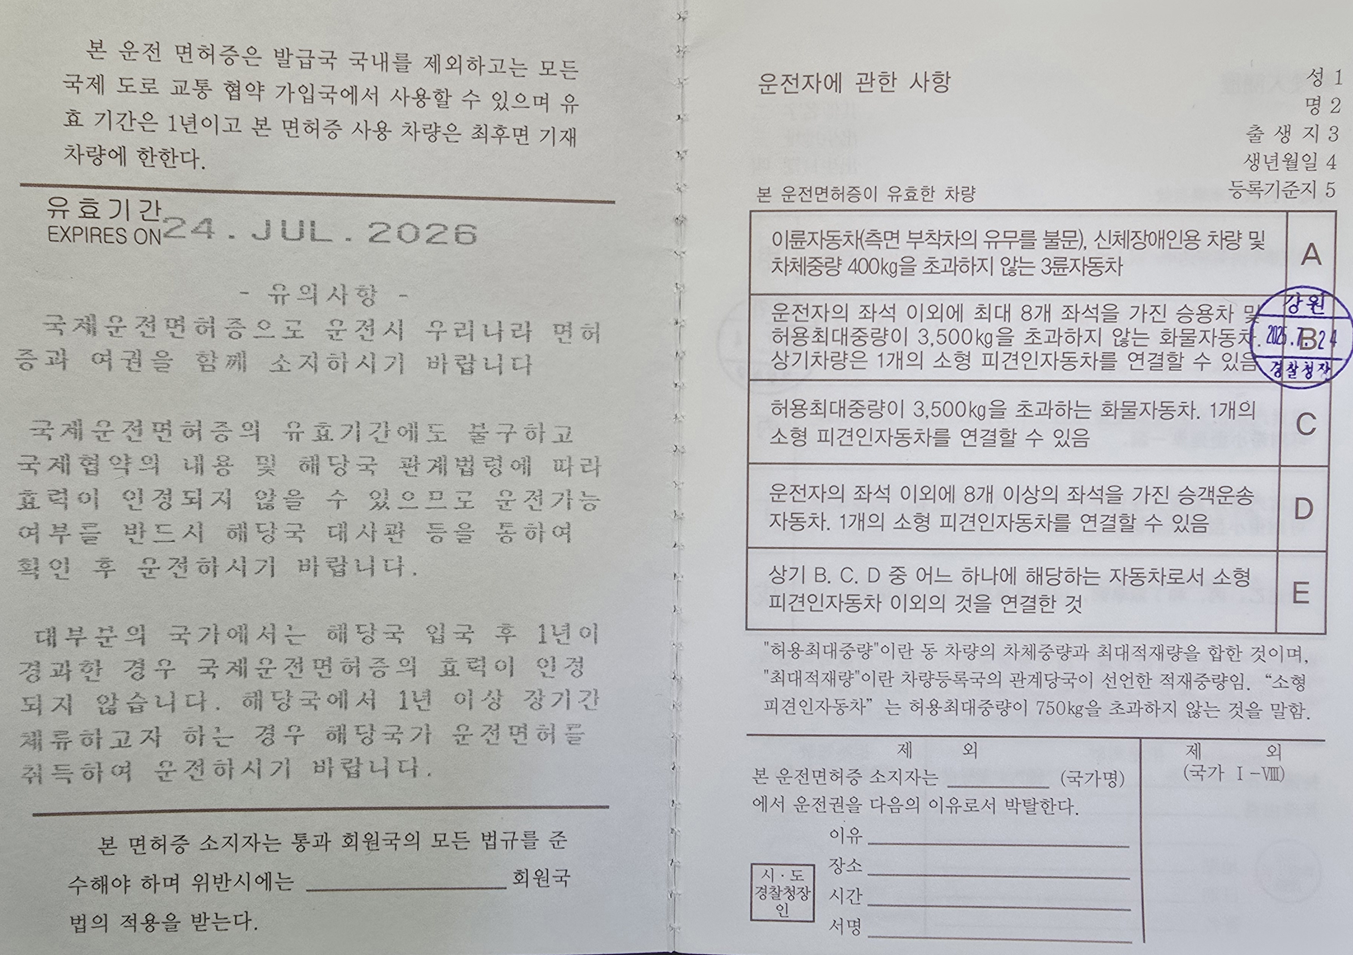 본 운전 면허증은 발급국 국내를 제외하고는 모든
국제 도로 교통 협약 가입국에서 사용할 수 있으며 유
효 기간은 1년이고 본 면허증 사용 차량은 최후면 기재
차량에 한한다.
유효기간
EXPIRES ON 24. JUL. 2026
- 유의사항 -
국제운전면허증으로 운전시 우리나라 면허
증과 여권을 함께 소지하시기 바랍니다
국제운전면허증의 유효기간에도 불구하고
국제협약의 내용 및 해당국 관계법령에 따라
효력이 인정되지 않을 수 있으므로 운전가능
여부를 반드시 해당국 대사관 등을 통하여
확인 후 운전하시기 바랍니다.
대부분의 국가에서는 해당국 입국 후 1년이
경과한 경우 국제운전면허증의 효력이 인정
되지 않습니다. 해당국에서 1년 이상 장기간
체류하고자 하는 경우 해당국가 운전면허를
취득하여 운전하시기 바랍니다.
본 면허증 소지자는 통과 회원국의 모든 법규를 준
수해야 하며 위반시에는 회원국
법의 적용을 받는다.
운전자에 관한 사항
성 1
명 2
출 생 지 3
생년월일 4
등록기준지 5
본 운전면허증이 유효한 차량
이륜자동차(측면 부착차의 유무를 불문), 신체장애인용 차량 및
차체중량 400kg을 초과하지 않는 3륜자동차
A
운전자의 좌석 이외에 최대 8개 좌석을 가진 승용차 및
허용최대중량이 3,500kg을 초과하지 않는 화물자동차.
상기차량은 1개의 소형 피견인자동차를 연결할 수 있음
B
강원
2025.7.24
경찰청장
허용최대중량이 3,500kg을 초과하는 화물자동차. 1개의
소형 피견인자동차를 연결할 수 있음
C
운전자의 좌석 이외에 8개 이상의 좌석을 가진 승객운송
자동차. 1개의 소형 피견인자동차를 연결할 수 있음
D
상기 B. C. D 중 어느 하나에 해당하는 자동차로서 소형
피견인자동차 이외의 것을 연결한 것
E
"허용최대중량"이란 동 차량의 차체중량과 최대적재량을 합한 것이며,
"최대적재량"이란 차량등록국의 관계당국이 선언한 적재중량임. “소형
피견인자동차” 는 허용최대중량이 750kg을 초과하지 않는 것을 말함.
제 외
본 운전면허증 소지자는 (국가명)
에서 운전권을 다음의 이유로서 박탈한다.
이유
장소
시간
서명
시 · 도
경찰청장
인
제 외
(국가 Ⅰ-Ⅷ)